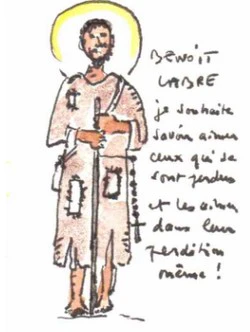 BENOIT
LABRE
je souhaite
savoir aimer
ceux qui se
sont perdus
et les aimer
dans leur
perdition
même !